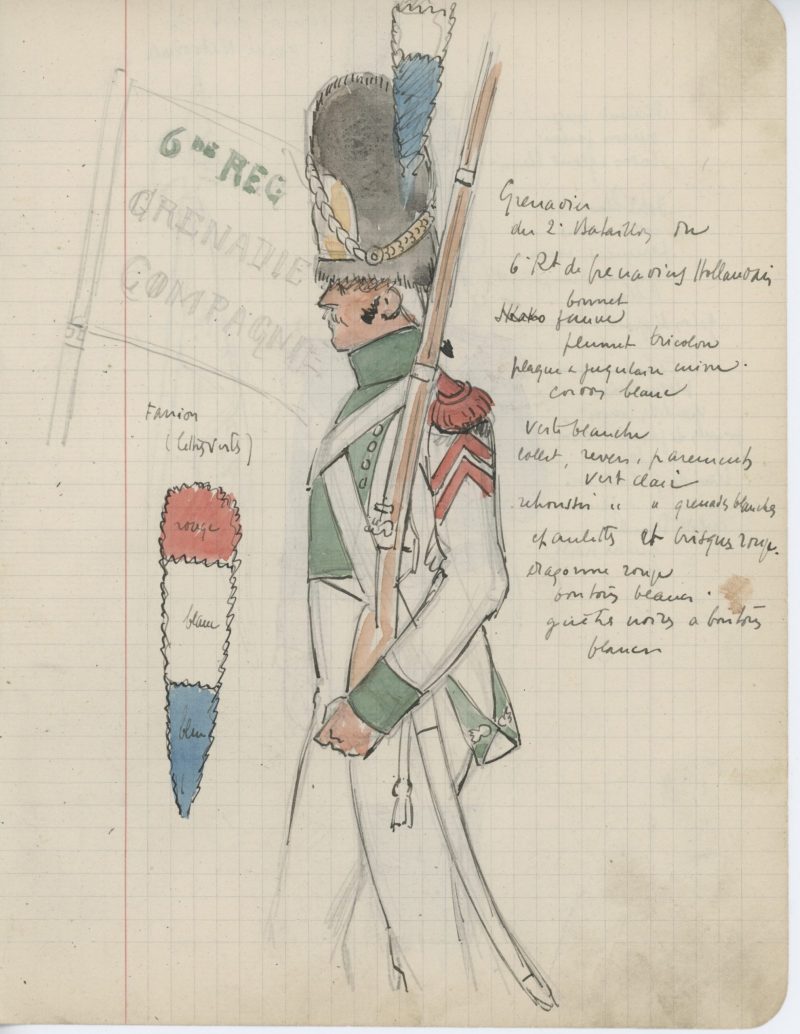 6 DE REG
GRENADIE
COMPAGNIE
Fanion
(lettres vertes)
rouge
blanc
bleu
Grenadier
du 2e Bataillon du
6e Rt de Grenadiers Hollandais
bonnet
Shako
plumet tricolor
plaque & jugulaire
cordon blanc
veste blanche
collet, revers, parements
vert clair
retroussis " " grenades blanches
epaulettes et brisques rouge.
dragonne rouge
boutons blancs.
guêtres noires a boutons
blancs